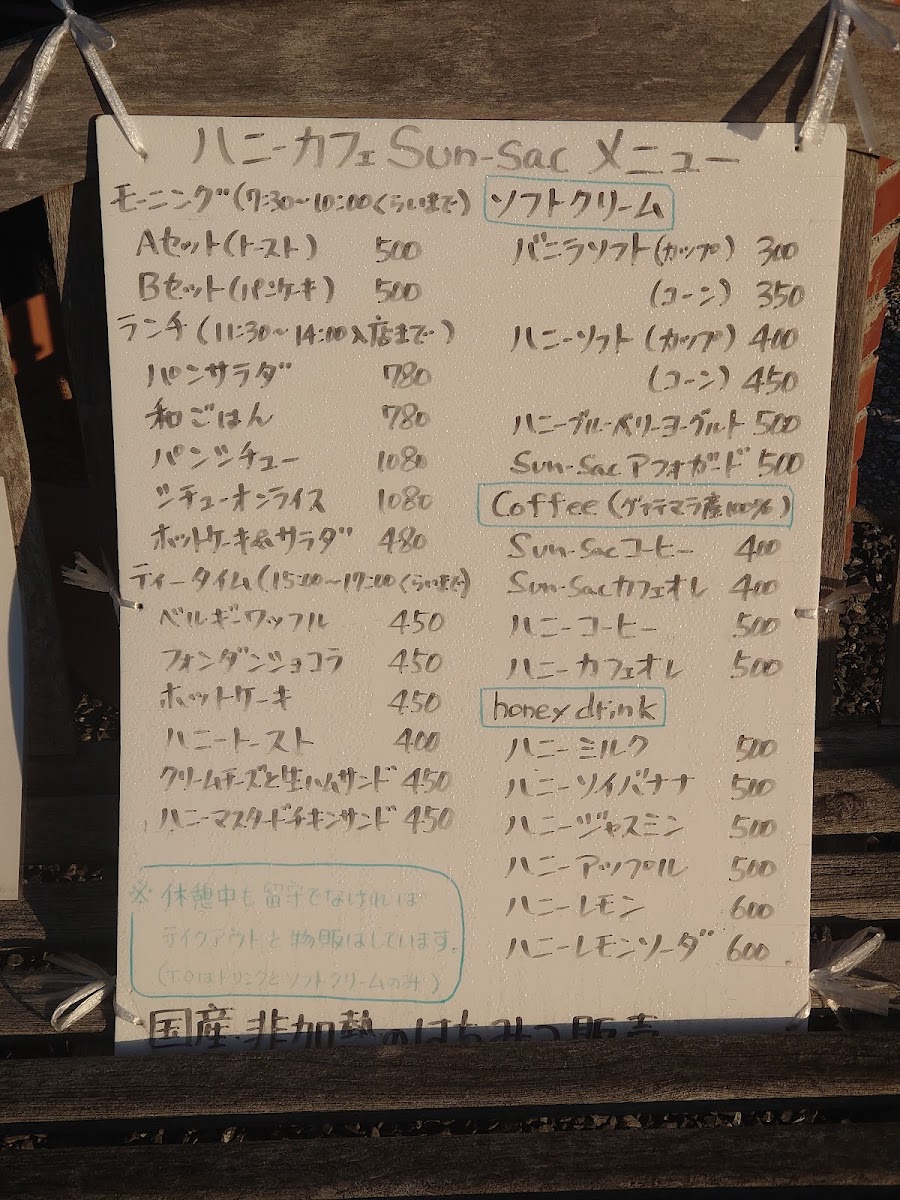 ハニーカフェ Sun-Sac メニュー
モーニング(7:30〜10:00くらいまで)
Aセット(トースト) 500
Bセット(パンケーキ) 500
ランチ(11:30〜14:00入店まで)
パンサラダ 780
和ごはん 780
パンシチュー 1080
シチューオンライス 1080
ホットケーキ&サラダ 480
ティータイム(15:00〜17:00くらいまで)
ベルギーワッフル 450
フォンダンショコラ 450
ホットケーキ 450
ハニートースト 400
クリームチーズと生ハムサンド 450
ハニーマスタードチキンサンド 450
※休憩中も留守でなければ
テイクアウトと物販はしています。
(T.Oはドリンクとソフトクリームのみ)
ソフトクリーム
バニラソフト(カップ) 300
(コーン) 350
ハニーソフト(カップ) 400
(コーン) 450
ハニーブルーベリーヨーグルト 500
Sun-Sacアフォガード 500
Coffee(グァテマラ産100%)
Sun-Sacコーヒー 400
Sun-Sacカフェオレ 400
ハニーコーヒー 500
ハニーカフェオレ 500
honey drink
ハニーミルク 500
ハニーソイバナナ 500
ハニージャスミン 500
ハニーアップル 500
ハニーレモン 600
ハニーレモンソーダ 600
国産.非加熱のはちみつ販売